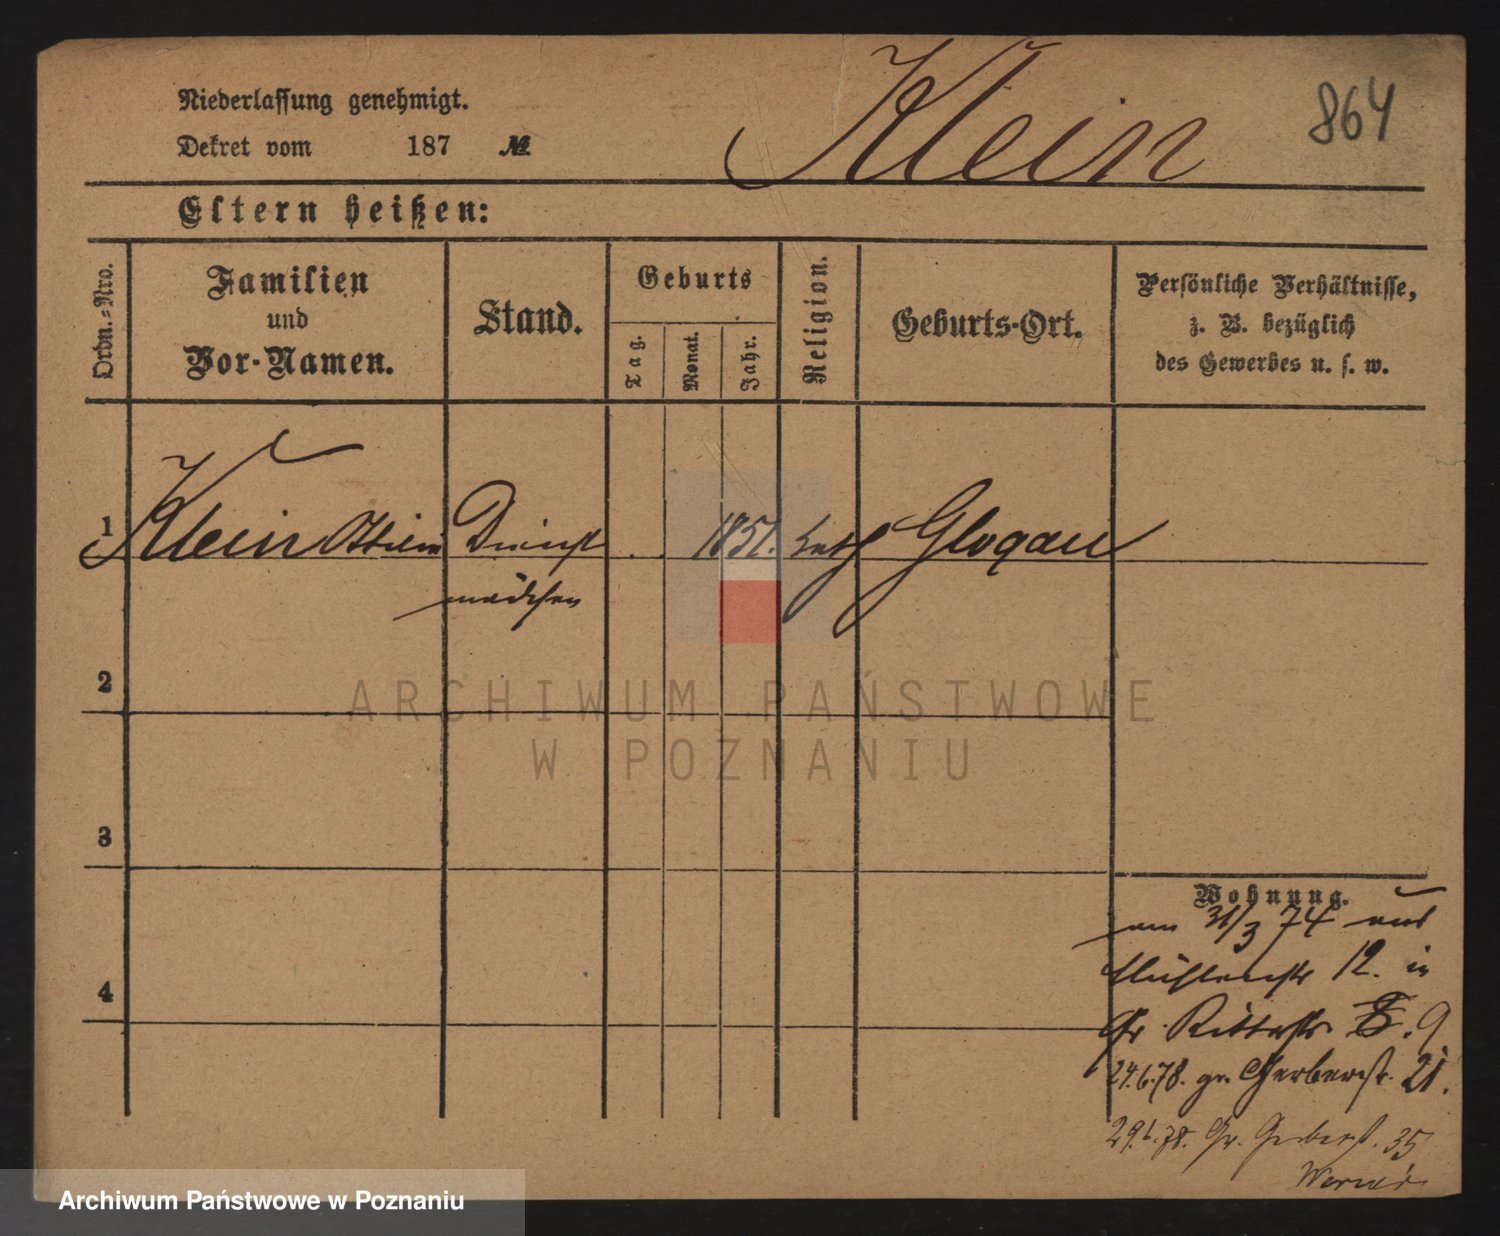 Klein
864
Niederlassung genehmigt.
Dekret vom 187 №
Eltern heißen:
Ordn.-Nro.
Familien und Vor-Namen.
Stand.
Geburts
Tag.
Monat.
Jahr.
Religion.
Geburts-Ort.
Persönliche Verhältnisse,
z. B. bezüglich
des Gewerbes u. s. w.
1 Klein Dienst 1851. kath Glogau
mädchen
2
ARCHIWUM PAŃSTWOWE
W POZNANIU
3
Wohnung.
am 31/3 74 aus
Mühlenstr 12. in
Gr Ritterstr 9
24.6.78. gr. Gerberstr. 21.
29.6.78. Gr. Gerberst. 35
4
Archiwum Państwowe w Poznaniu